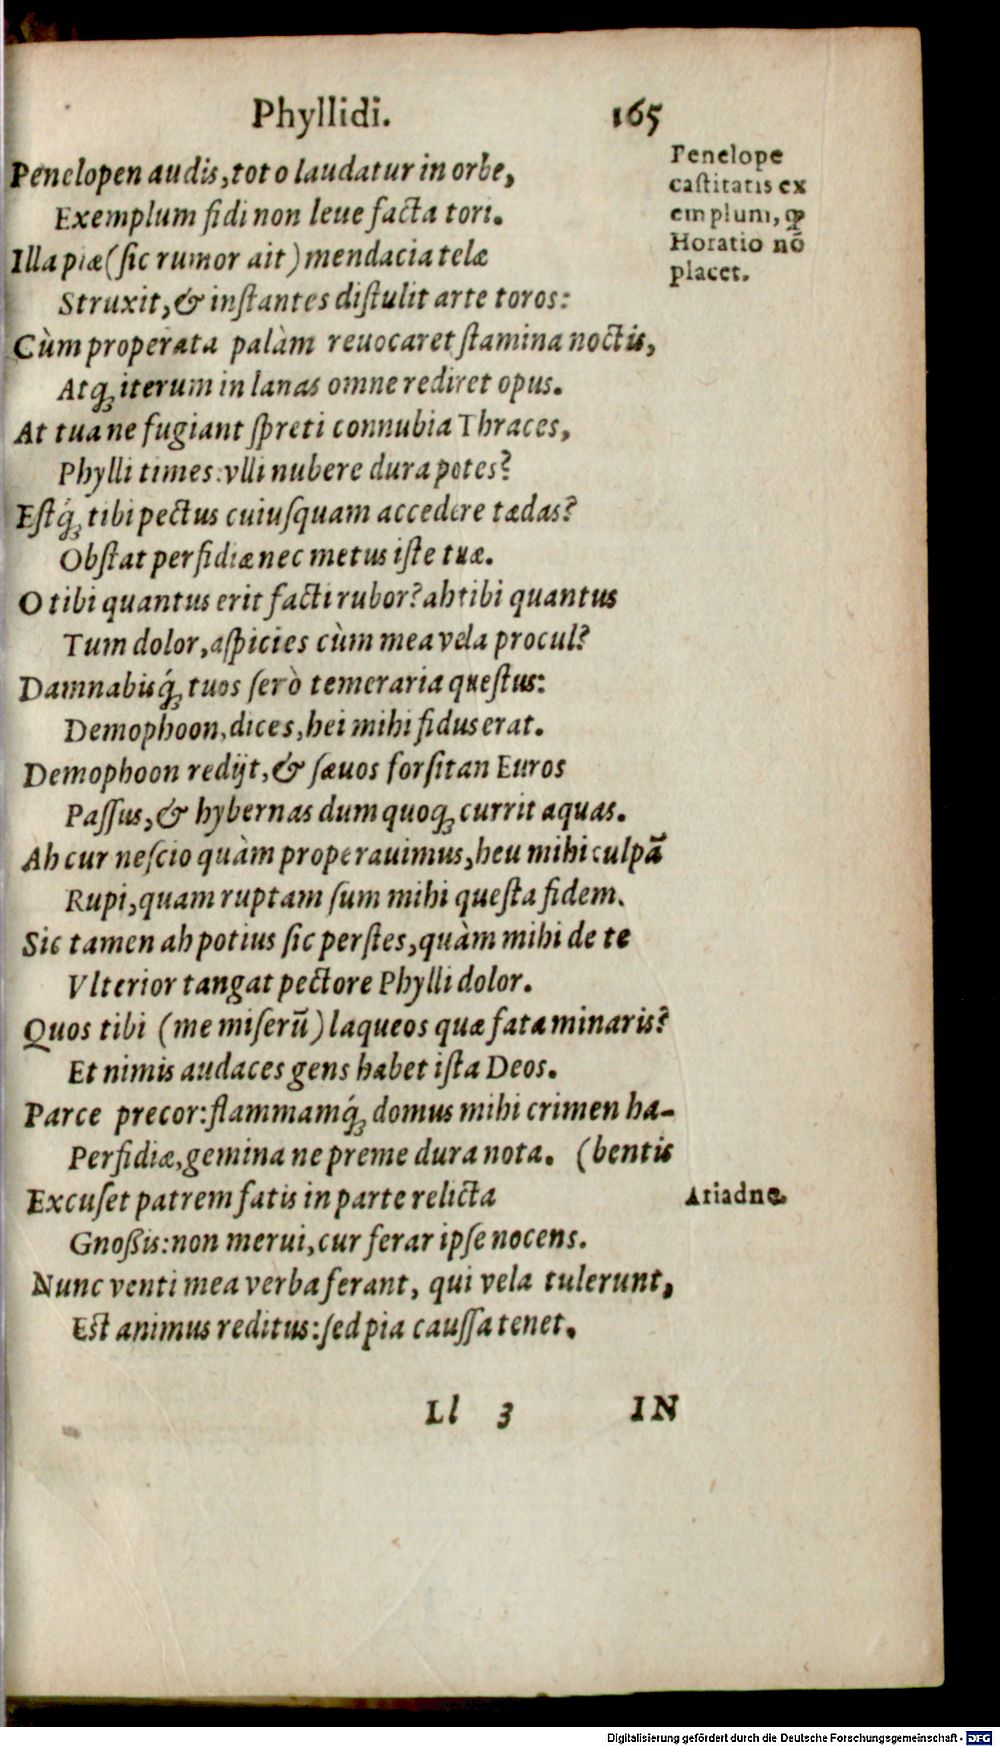 Phyllidi. 165
Penelopen audis, toto laudatur in orbe,
Exemplum fidi non leue facta tori.
Illa piæ (sic rumor ait) mendacia telæ
Struxit, & instantes distulit arte toros:
Cùm properata palàm reuocaret stamina noctis,
Atq́; iterum in lanas omne rediret opus.
At tua ne fugiant spreti connubia Thraces,
Phylli times: vlli nubere dura potes?
Estq́; tibi pectus cuiusquam accedere tædas?
Obstat perfidiæ nec metus iste tuæ.
O tibi quantus erit facti rubor? ah tibi quantus
Tum dolor, aspicies cùm mea vela procul?
Damnabisq́; tuos serò temeraria questus:
Demophoon, dices, hei mihi fidus erat.
Demophoon redijt, & sæuos forsitan Euros
Passus, & hybernas dum quoq; currit aquas.
Ah cur nescio quàm properauimus, heu mihi culpã
Rupi, quam ruptam sum mihi questa fidem.
Sic tamen ah potius sic perstes, quàm mihi de te
Vlterior tangat pectore Phylli dolor.
Quos tibi (me miserũ) laqueos quæ fata minaris?
Et nimis audaces gens habet ista Deos.
Parce precor: flammamq́; domus mihi crimen ha-
Perfidiæ, gemina ne preme dura nota. (bentis
Excuset patrem fatis in parte relicta
Gnoßis: non merui, cur ferar ipse nocens.
Nunc venti mea verba ferant, qui vela tulerunt,
Est animus reditus: sed pia caussa tenet.
Ll 3 IN
Penelope
castitatis ex
emplum, ꝙ
Horatio nõ
placet.
Ariadne.
Digitalisierung gefördert durch die Deutsche Forschungsgemeinschaft - DFG